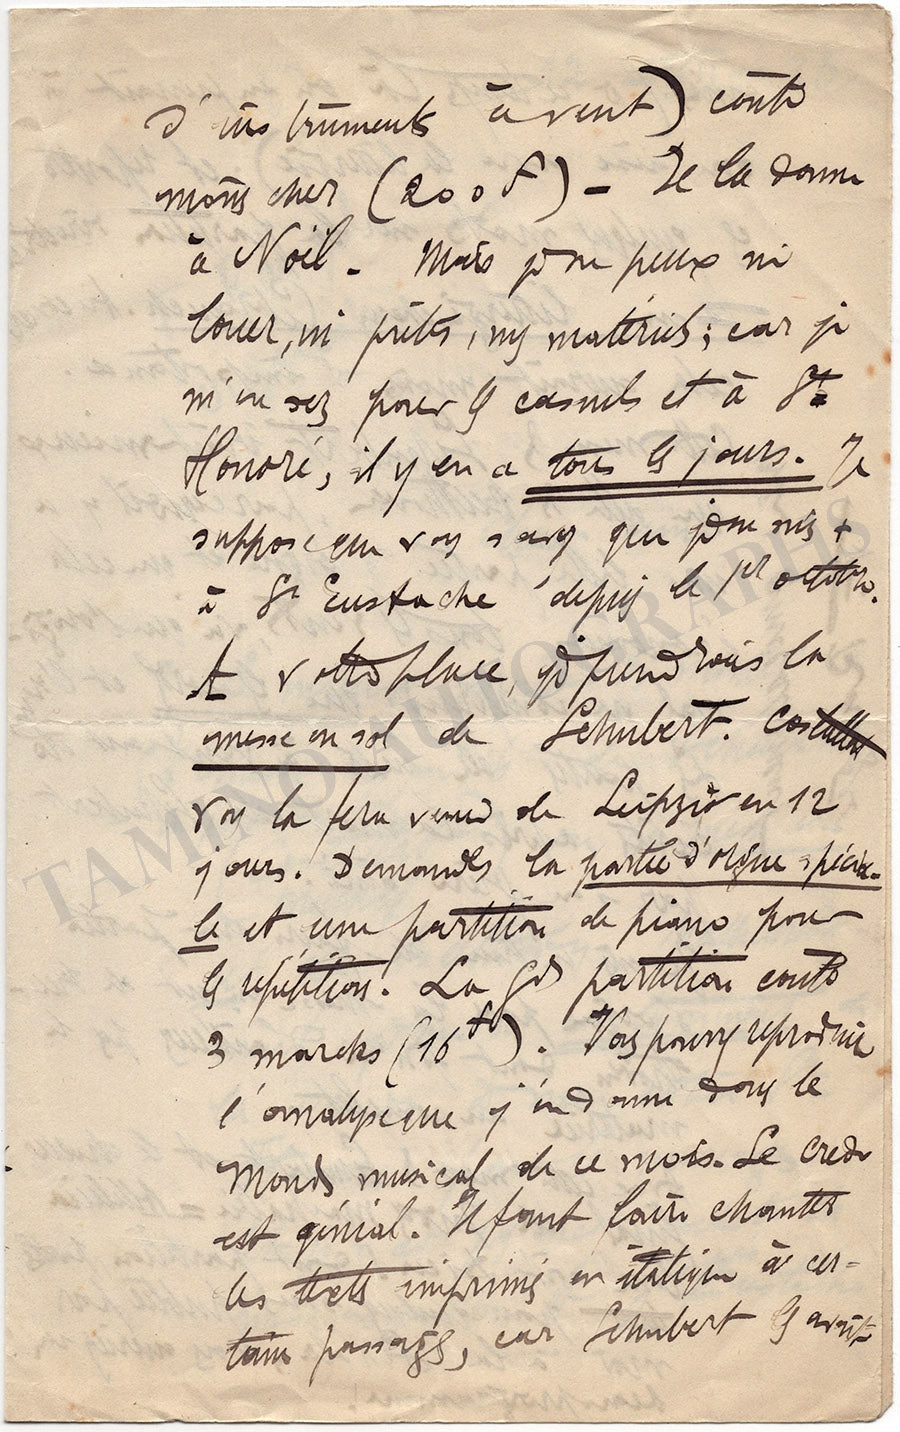 d'instruments à vent) coûte
moins cher (200 f) – Je la donne
à Noël. Mais je ne peux ni
louer, ni prêter, mes matériels; car je
m'en sers pour les casuels et à St
Honoré, il y en a tous les jours. Je
suppose que vous savez que je ne suis +
à St Eustache depuis le 1er octobre.
A votre place, je prendrais la
messe en sol de Schubert.
Vous la ferez venir de Leipzig en 12
jours. Demandez la partie d'orgue spécia-
le et une partition de piano pour
les répétitions. La gde partition coûte
3 marcks (16 f). Vous pouvez reproduire
l'analyse que j'en donne dans le
Monde musical de ce mois. Le credo
est génial. Il faut faire chanter
les textes imprimés en italique à cer-
tains passages, car Schubert les avait
TAMINO AUTOGRAPHS